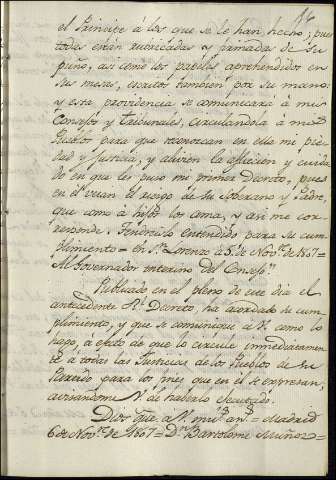 el Principe á los que se le han hecho; pues
todas están rubricadas y firmadas de su
puño, asi como los papeles aprehendidos en
sus mesas, escritos tambien por su mano:
y esta providencia se comunicará á mis
Consejos y Tribunales, circulandola á mis
Pueblos para que reconozcan en ella mi pie-
dad y justicia, y alivien la afliccion y cuida-
do en que les puso mi primer Decreto, pues
en él verán el riesgo de su Soberano y Padre,
que como á hijos los ama, y asi me cor-
responde. Tendreislo entendido para su cum-
plimiento = en Sn. Lorenzo á 5. de Novre. de 1807 =
Al Governador interino del Consejo.
Publicado en el pleno de este dia el
antecedente Rl. Decreto, ha acordado su cum-
plimiento, y que se comunique á V. como lo
hago, á efecto de que lo circule inmediatamen-
te á todas las Justicias de los Pueblos de su
Partido para los fines que en él se expresan,
avisandome V. de haberlo executado.
Dios gue. a V. ms. as. = Madrid
6 de Novre. de 1807 = Dn. Bartolomé Muñoz =